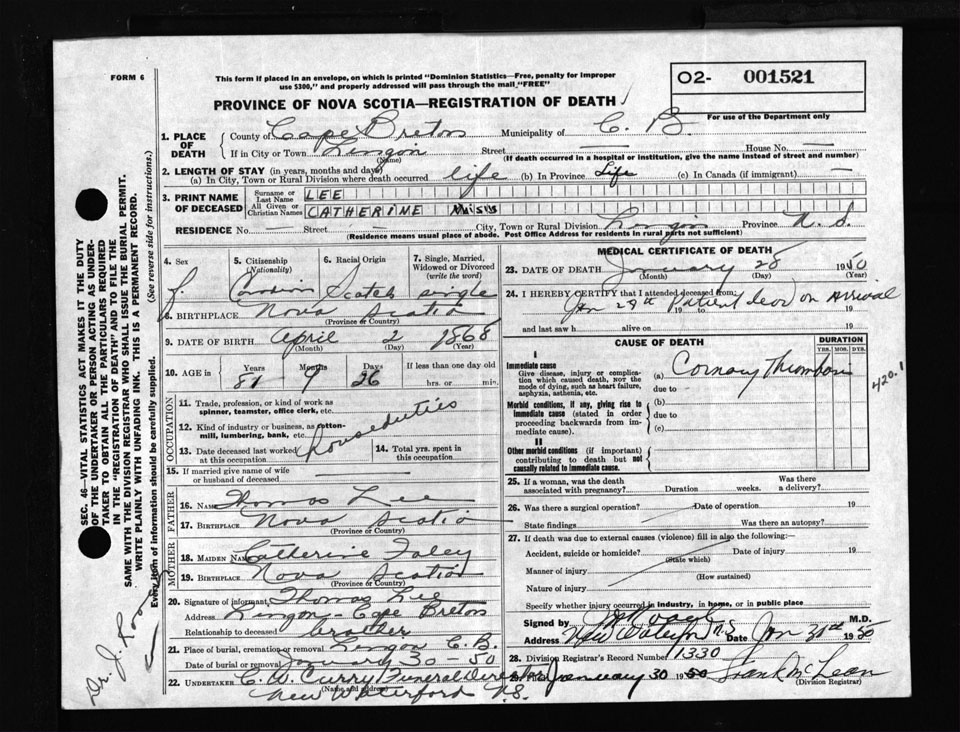 FORM 6
This form if placed in an envelope, on which is printed "Dominion Statistics—Free, penalty for improper
use $300," and properly addressed will pass through the mail "FREE"
O2- 001521
For use of the Department only
PROVINCE OF NOVA SCOTIA—REGISTRATION OF DEATH
1. PLACE OF DEATH
County of Cape Breton Municipality of C. B.
If in City or Town Lingan Street — House No. —
(Name) (If death occurred in a hospital or institution, give the name instead of street and number)
2. LENGTH OF STAY (in years, months and days)
(a) In City, Town or Rural Division where death occurred life (b) In Province Life (c) In Canada (if immigrant) —
3. PRINT NAME OF DECEASED
Surname or Last Name LEE
All Given or Christian Names CATHERINE
RESIDENCE No. — Street — City, Town or Rural Division Lingan Province N. S.
(Residence means usual place of abode. Post Office Address for residents in rural parts not sufficient)
4. Sex f.
5. Citizenship (Nationality)
6. Racial Origin Scotch
7. Single, Married, Widowed or Divorced (write the word) single
8. BIRTHPLACE Nova Scotia
(Province or Country)
9. DATE OF BIRTH April 2 1868
(Month) (Day) (Year)
10. AGE in Years Months Days If less than one day old
81 9 26 hrs. or min.
OCCUPATION
11. Trade, profession or kind of work as
spinner, teamster, office clerk, etc.
12. Kind of industry or business, as cotton-
mill, lumbering, bank, etc.
houseduties
13. Date deceased last worked at this occupation
14. Total yrs. spent in this occupation
15. If married give name of wife
or husband of deceased —
FATHER
16. NAME Thomas Lee
17. BIRTHPLACE Nova Scotia
(Province or Country)
MOTHER
18. MAIDEN NAME Catherine Foley
19. BIRTHPLACE Nova Scotia
(Province or Country)
20. Signature of informant Thomas Lee
Address Lingan - Cape Breton
Relationship to deceased brother
21. Place of burial, cremation or removal Lingan C. B.
Date of burial or removal January 30 - 50
22. UNDERTAKER C. W. Curry Funeral Director
(Name and address)
New Waterford N.S.
MEDICAL CERTIFICATE OF DEATH
23. DATE OF DEATH January 28 1950
(Month) (Day) (Year)
24. I HEREBY CERTIFY that I attended deceased from:
Jan 28th Patient dead on Arrival
19 to 19
and last saw h alive on 19
CAUSE OF DEATH
DURATION
YRS. MOS. DYS.
I
Immediate cause
Give disease, injury or complica-
tion which caused death, not the
mode of dying, such as heart failure,
asphyxia, asthenia, etc.
(a) Cornary Thrombosis
due to
420.1
Morbid conditions, if any, giving rise to
immediate cause (stated in order
proceeding backwards from im-
mediate cause).
(b)
due to
(c)
II
Other morbid conditions (if important)
contributing to death but not
causally related to immediate cause.
25. If a woman, was the death
associated with pregnancy? Duration weeks. Was there
a delivery?
26. Was there a surgical operation? Date of operation 19
State findings Was there an autopsy?
27. If death was due to external causes (violence) fill in also the following:—
Accident, suicide or homicide? Date of injury 19
(State which)
Manner of injury
(How sustained)
Nature of injury
Specify whether injury occurred in industry, in home, or in public place
Signed by M.D.
Address New Waterford N.S Date Jan 30th 1950
28. Division Registrar's Record Number 1330
January 30 1950 Frank McLean
(Division Registrar)
SEC. 46—VITAL STATISTICS ACT MAKES IT THE DUTY
OF THE UNDERTAKER OR PERSON ACTING AS UNDER-
TAKER TO OBTAIN ALL THE PARTICULARS REQUIRED
IN THE "REGISTRATION OF DEATH" AND TO FILE THE
SAME WITH THE DIVISION REGISTRAR WHO SHALL ISSUE THE BURIAL PERMIT.
WRITE PLAINLY WITH UNFADING INK. THIS IS A PERMANENT RECORD.
Every item of information should be carefully supplied. (See reverse side for instructions.)
Dr. J.